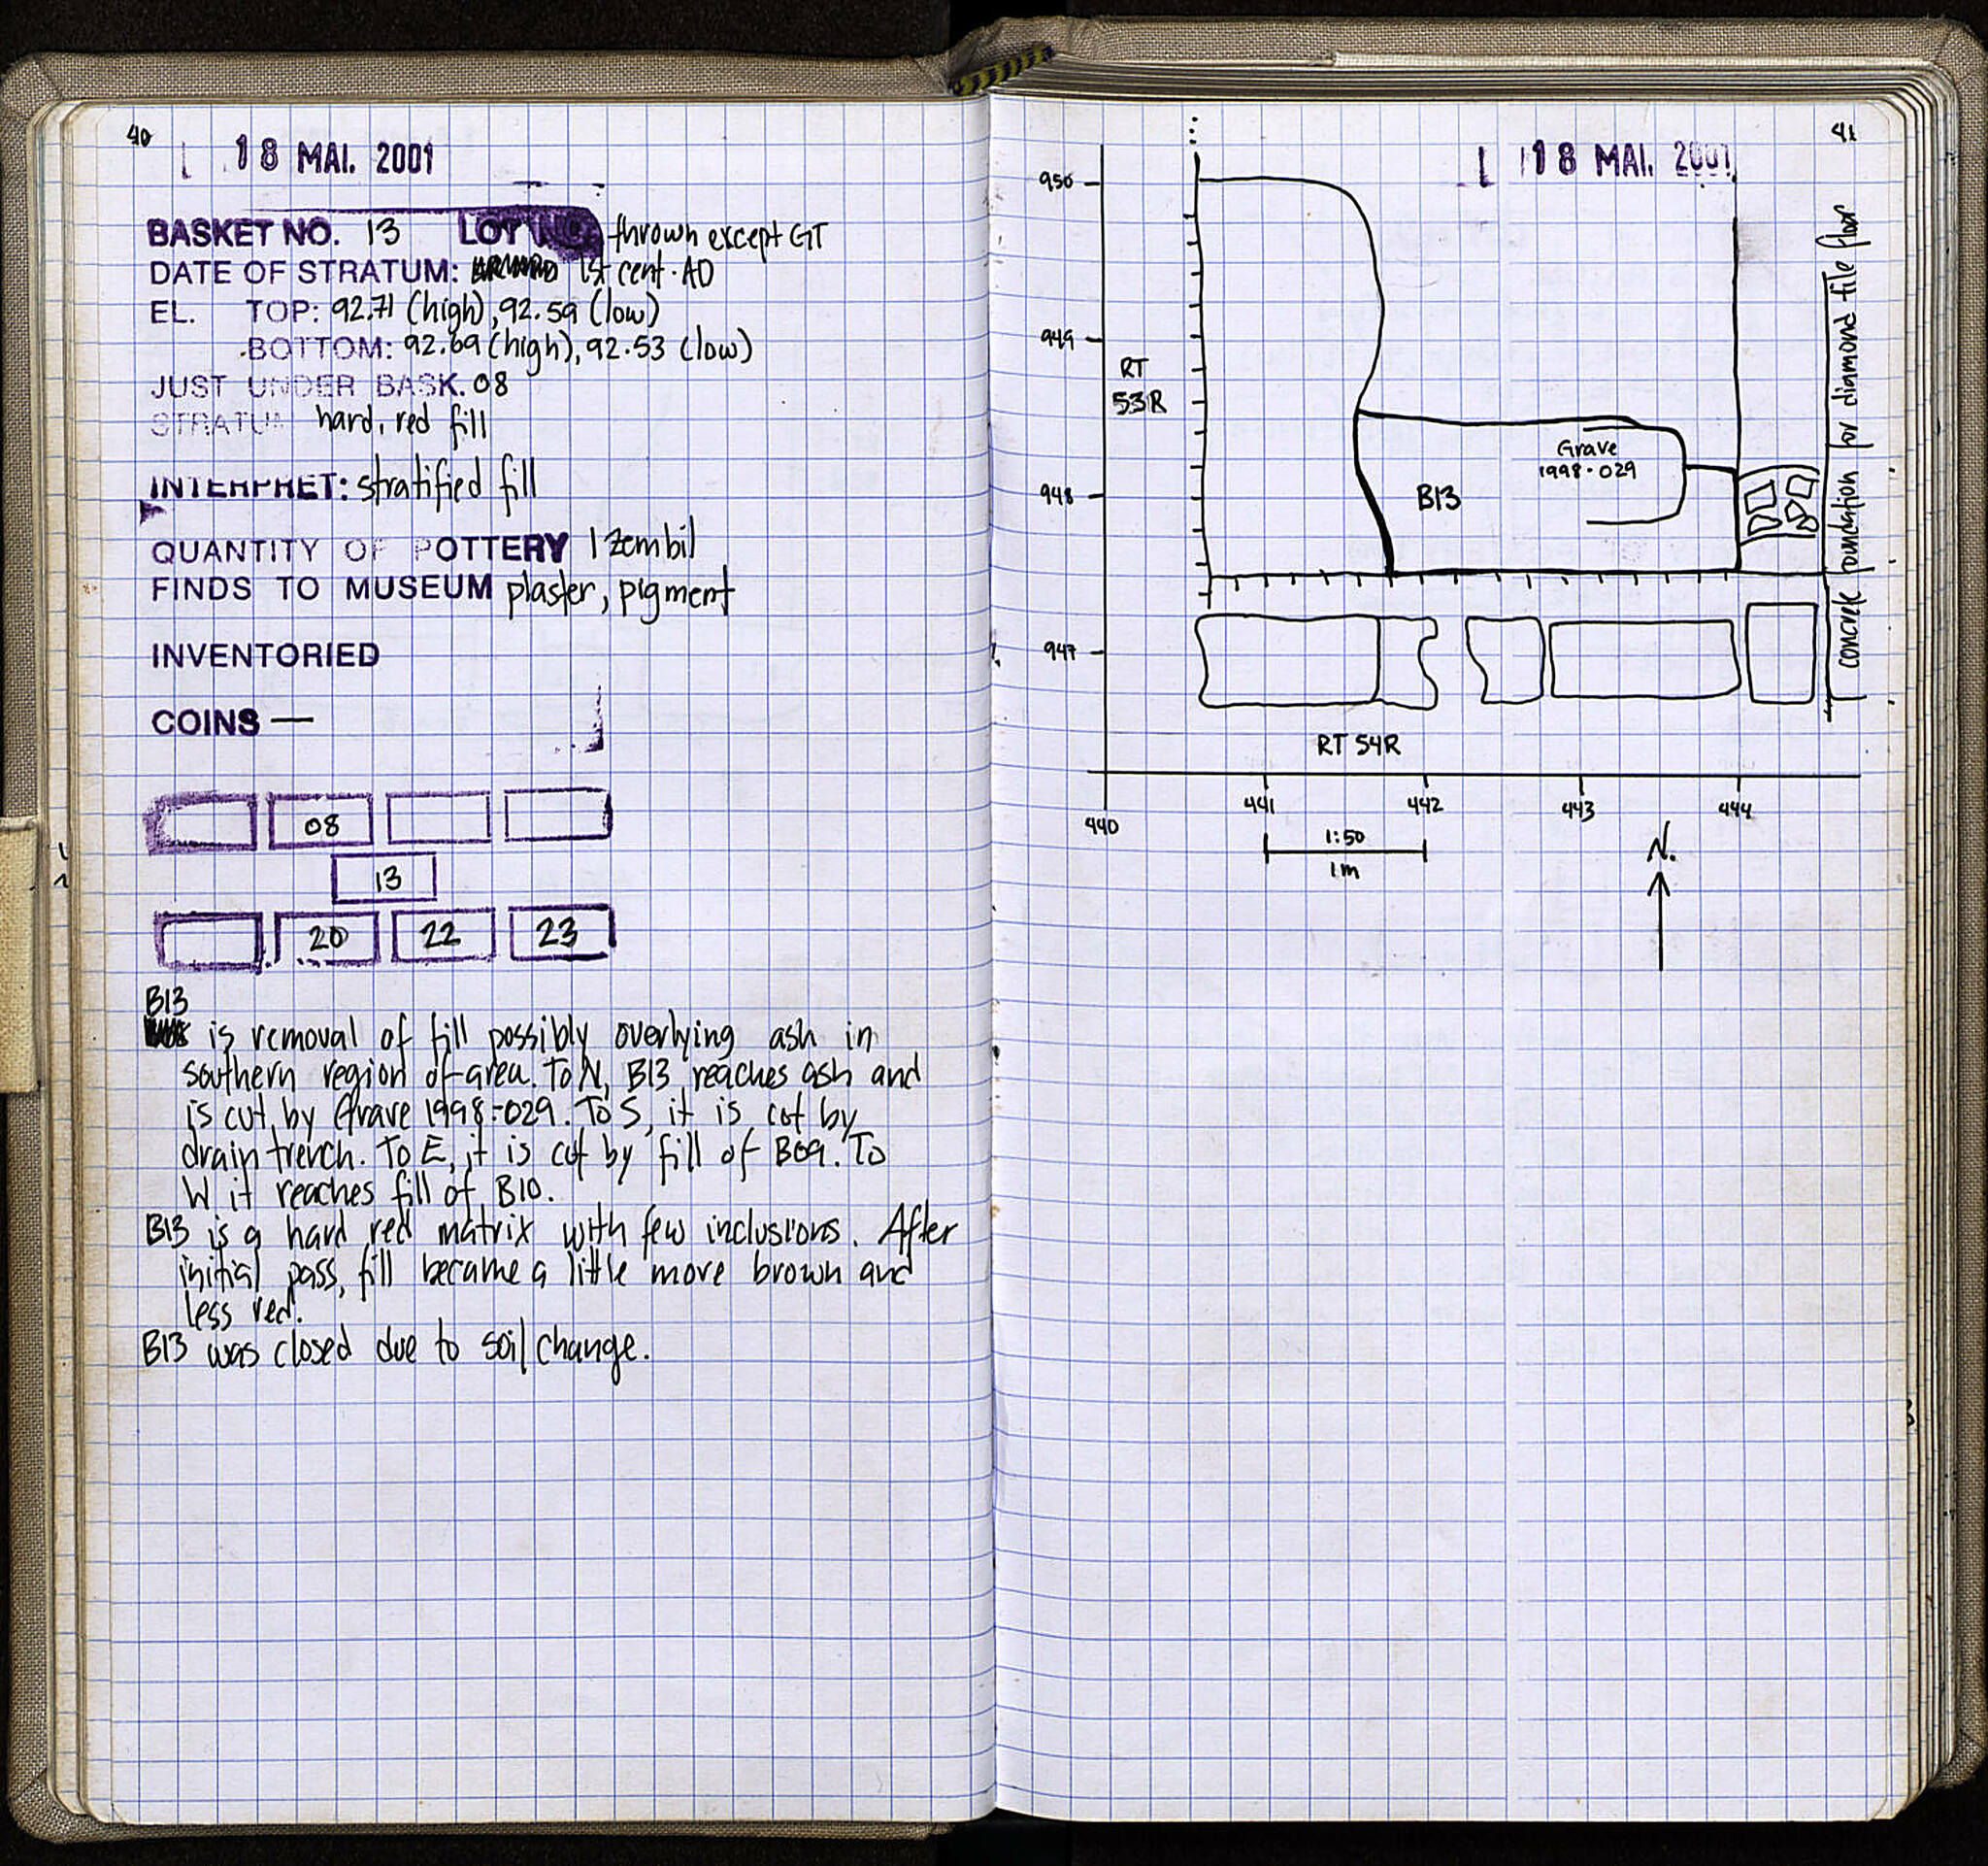 40
18 MAI. 2001
BASKET NO. 13 LOT NO. thrown except GT
DATE OF STRATUM: 1st cent. AD
EL. TOP: 92.71 (high), 92.59 (low)
BOTTOM: 92.69 (high), 92.53 (low)
JUST UNDER BASK. 08
STRATUM hard, red fill
INTERPRET: stratified fill
QUANTITY OF POTTERY 1 zembil
FINDS TO MUSEUM plaster, pigment
INVENTORIED
COINS —
08
13
20 22 23
B13
is removal of fill possibly overlying ash in
southern region of area. To N, B13 reaches ash and
is cut by Grave 1998-029. To S, it is cut by
drain trench. To E, it is cut by fill of B09. To
W it reaches fill of B10.
B13 is a hard red matrix with few inclusions. After
initial pass, fill became a little more brown and
less red.
B13 was closed due to soil change.
41
18 MAI. 2001
950
949
948
947
RT
53R
Grave
1998-029
B13
concrete foundation for diamond tile floor
RT 54R
440 441 442 443 444
1:50
1m
N.